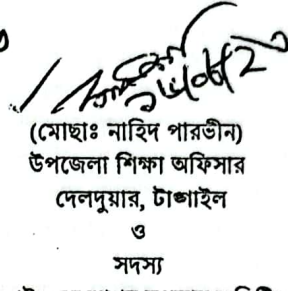 (মোছাঃ নাহিদ পারভীন)
উপজেলা শিক্ষা অফিসার
দেলদুয়ার, টাঙ্গাইল
ও
সদস্য